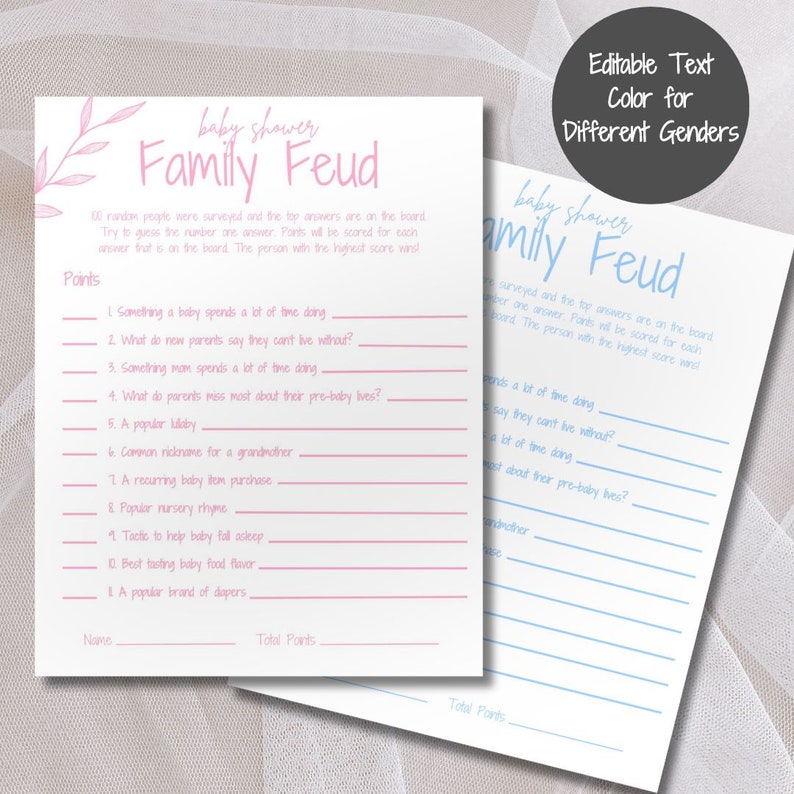 Editable Text
Color for
Different Genders
baby shower
Family Feud
100 random people were surveyed and the top answers are on the board.
Try to guess the number one answer. Points will be scored for each
answer that is on the board. The person with the highest score wins!
Points
1. Something a baby spends a lot of time doing
2. What do new parents say they can't live without?
3. Something mom spends a lot of time doing
4. What do parents miss most about their pre-baby lives?
5. A popular lullaby
6. Common nickname for a grandmother
7. A recurring baby item purchase
8. Popular nursery rhyme
9. Tactic to help baby fall asleep
10. Best tasting baby food flavor
11. A popular brand of diapers
Name
Total Points
baby shower
amily Feud
re surveyed and the top answers are on the board.
number one answer. Points will be scored for each
e board. The person with the highest score wins!
spends a lot of time doing
ts say they can't live without?
s a lot of time doing
s most about their pre-baby lives?
grandmother
hase
Total Points